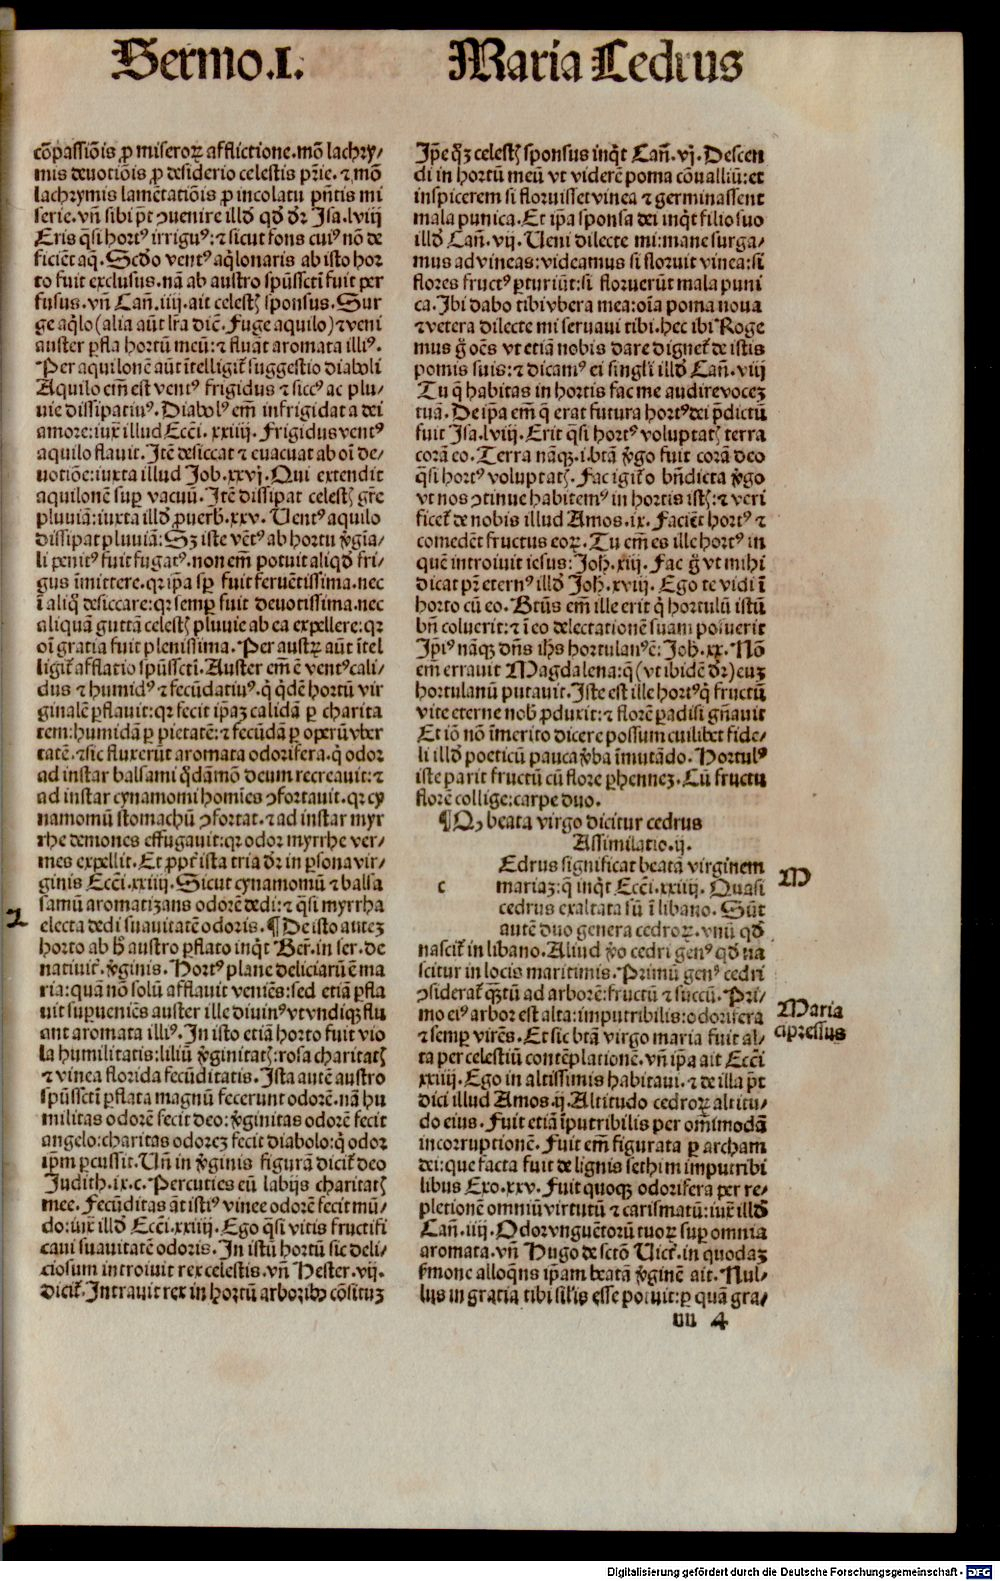 Sermo .I. Maria Cedrus
cõpassiõis ꝓ miseroꝝ afflictione. mõ lachry⸗
mis deuotiõis ꝓ desiderio celestis pr̃ie. ⁊ mõ
lachrymis lamẽtatiõis ꝓ incolatu pñtis mi
serie. vñ sibi p̃t ↄuenire illđ qđ dr̃ Isa. lviij
Eris q̃si hortꝰ irriguꝰ: ⁊ sicut fons cuiꝰ nõ de
ficiẽt aq̃. Scđo ventꝰ aq̃lonaris ab isto hor
to fuit exclusus. nã ab austro spũssctĩ fuit per
fusus. vñ Cañ. iiij. ait celestꝭ sponsus. Sur
ge aq̃lo (alia aũt lr̃a dic̃. Fuge aquilo) ⁊ veni
auster ꝑfla hortũ meũ: ⁊ fluãt aromata illiꝰ.
Per aquilonẽ aũt ĩtelligit̃ suggestio diaboli
Aquilo em̃ est ventꝰ frigidus ⁊ siccꝰ ac plu⸗
uie dissipatiuꝰ. Diabolꝰ em̃ infrigidat a dei
amore: iux̃ illud Ecc̃i. xxiiij. Frigidus ventꝰ
aquilo flauit. Itẽ desiccat ⁊ euacuat ab oĩ de⸗
uotiõe: iuxta illud Job. xxvj. Qui extendit
aquilonẽ suꝑ vacuũ. Itẽ dissipat celestꝭ gr̃e
pluuiã: iuxta illđ ꝓuerb̃. xxv. Uentꝰ aquilo
dissipat pluuiã: Sꝫ iste vẽtꝰ ab hortu ṽgĩa⸗
li penitꝰ fuit fugatꝰ. non em̃ potuit aliqđ fri⸗
gus ĩmittere. qꝛ ip̃a sꝑ fuit feruẽtissima. nec
ĩ aliq̃ desiccare: qꝛ semꝑ fuit deuotissima. nec
aliquã guttã celestꝭ pluuie ab ea expellere: qꝛ
oĩ gratia fuit plenissima. Per austꝝ aũt ĩtel
ligit̃ afflatio spũssctĩ. Auster em̃ ẽ ventꝰ cali⸗
dus ⁊ humidꝰ ⁊ fecũdatiuꝰ. q̃ q̃dẽ hortũ vir
ginalẽ ꝑflauit: qꝛ fecit ip̃aꝫ calidã ꝑ charita
tem: humidã ꝑ pietatẽ: ⁊ fecũdã ꝑ operũ vber
tatẽ. ⁊ sic fluxerũt aromata odorifera. q̃ odor
ad instar balsami q̃dãmõ deum recreauit: ⁊
ad instar cynamomi homĩes ↄfortauit. qꝛ cy
namomũ stomachũ ↄfortat. ⁊ ad instar myr
rhe demones effugauit: qꝛ odor myrrhe ver⸗
mes expellit. Et ꝓpt̃ ista tria dr̃ in ꝑsona vir⸗
ginis Ecc̃i. xxiiij. Sicut cynamomũ ⁊ balsa
samũ aromatizans odorẽ dedi: ⁊ q̃si myrrha
electa dedi suauitatẽ odoris. ¶ De isto auteꝫ
horto ab h̃ austro ꝑflato inq̃t Ber̃. in ser. de
natiuit̃. ṽginis. Hortꝰ plane deliciarũ ẽ ma
ria: quã nõ solũ afflauit veniẽs: sed etiã ꝑfla
uit suꝑueniẽs auster ille diuinꝰ vt vndiqꝫ flu
ant aromata illiꝰ. In isto etiã horto fuit vio
la humilitatis: liliũ ṽginitatꝭ: rosa charitatꝭ
⁊ vinea florida fecũditatis. Ista autẽ austro
spũssctĩ ꝑflata magnũ fecerunt odorẽ. nã hu
militas odorẽ fecit deo: ṽginitas odorẽ fecit
angelo: charitas odoreꝫ fecit diabolo: q̃ odor
ip̃m ꝑcussit. Uñ in ṽginis figurã dicit̃ deo
Judith. ix. c. Percuties eũ labijs charitatꝭ
mee. Fecũditas ãt istiꝰ vinee odorẽ fecit mũ⸗
do: iux̃ illđ Ecc̃i. xxiiij. Ego q̃si vitis fructifi
caui suauitatẽ odoris. In istũ hortũ sic deli⸗
ciosum introiuit rex celestis. vñ Hester. vij.
dicit̃. Intrauit rex in hortũ arboribꝫ cõsituꝫ
Ip̃e q̃ꝫ celestꝭ sponsus inq̃t Cañ. vj. Descen
di in hortũ meũ vt viderẽ poma cõualliũ: et
inspicerem si floruisset vinea ⁊ germinassent
mala punica. Et ip̃a sponsa dei inq̃t filio suo
illđ Cañ. vij. Ueni dilecte mi: mane surga⸗
mus ad vineas: videamus si floruit vinea: si
flores fructꝰ ꝑturiũt: si floruerũt mala puni
ca. Ibi dabo tibi vbera mea: oĩa poma noua
⁊ vetera dilecte mi seruaui tibi. hec ibi Roge
mus g̃ oẽs vt etiã nobis dare dignet̃ de istis
pomis suis: ⁊ dicamꝰ ei singlĩ illđ Cañ. viij
Tu q̃ habitas in hortis fac me audire voceꝫ
tuã. De ip̃a em̃ q̃ erat futura hortꝰ dei p̃dictũ
fuit Isa. lviij. Erit q̃si hortꝰ voluptatꝭ terra
corã eo. Terra nãqꝫ. i. btã ṽgo fuit corã deo
q̃si hortꝰ voluptatꝭ. Fac igit̃ o bñdicta ṽgo
vt nos ↄtinue habitemꝰ in hortis istꝭ: ⁊ veri
ficet̃ de nobis illud Amos. ix. Faciẽt hortꝰ ⁊
comedẽt fructus eoꝝ. Tu em̃ es ille hortꝰ in
quẽ introiuit iesus: Joh̃. xiij. Fac g̃ vt mihi
dicat pr̃ eternꝰ illđ Joh̃. xviij. Ego te vidi ĩ
horto cũ eo. Btũs em̃ ille erit q̃ hortulũ istũ
bñ coluerit: ⁊ ĩ eo delectationẽ suam posuerit
Ip̃iꝰ nãqꝫ dñs ih̃s hortulanꝰ ẽ: Joh̃. xx. Nõ
em̃ errauit Magdalena: q̃ (vt ibidẽ dr̃) euꝫ
hortulanũ putauit. Iste est ille hortꝰ q̃ fructũ
vite eterne nob̃ ꝓduxit: ⁊ florẽ padisi gñauit
Et iõ nõ ĩmerito dicere possum cuilibet fide⸗
li illđ poeticũ pauca ṽba ĩmutãdo. Hortulꝰ
iste parit fructũ cũ flore ꝑhenneꝫ. Cũ fructu
florẽ collige: carpe duo.
¶ Qꝫ beata virgo dicitur cedrus
Assimilatio. ij.
c Edrus significat beatã virginem
mariaꝫ: q̃ inq̃t Ecc̃i. xxiiij. Quasi
cedrus exaltata sũ ĩ libano. Sũt
autẽ duo genera cedroꝝ. vnũ qđ
nascit̃ in libano. Aliud ṽo cedri genꝰ qđ na
scitur in locis maritimis. Primũ genꝰ cedri
ↄsiderat̃ quãtũ ad arborẽ: fructũ ⁊ succũ. Pri⸗
mo eiꝰ arbor est alta: imputribilis: odorifera
⁊ semꝑ virẽs. Et sic btã virgo maria fuit al⸗
ta per celestiũ contẽplationẽ. vñ ip̃a ait Ecc̃i
xxiiij. Ego in altissimis habitaui. ⁊ de illa p̃t
dici illud Amos. ij. Altitudo cedroꝝ altitu⸗
do eius. Fuit etiã ĩputribilis per om̃imodã
incorruptionẽ. Fuit em̃ figurata ꝑ archam
dei: que facta fuit de lignis sethim imputribi
libus Exo. xxv. Fuit quoqꝫ odorifera per re⸗
pletionẽ omniũ virtutũ ⁊ carismatũ: iux̃ illđ
Cañ. iiij. Odor vnguẽtorũ tuoꝝ suꝑ omnia
aromata. vñ Hugo de sctõ Uict̃. in quodaꝫ
s̃mone alloq̃ns ip̃am beatã ṽginẽ ait. Nul⸗
lus in gratia tibi sil̃is esse potuit: ꝑ quã gra⸗
L
M
Maria
cipressus
uu 4
Digitalisierung gefördert durch die Deutsche Forschungsgemeinschaft - DFG